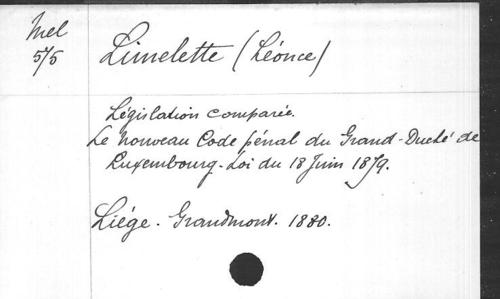 Mel
5/5
Limelette (Léonce)
Législation comparée.
Le nouveau Code pénal du Grand-Duché de
Luxembourg. Loi du 18 Juin 1879.
Liége. Grandmont. 1880.